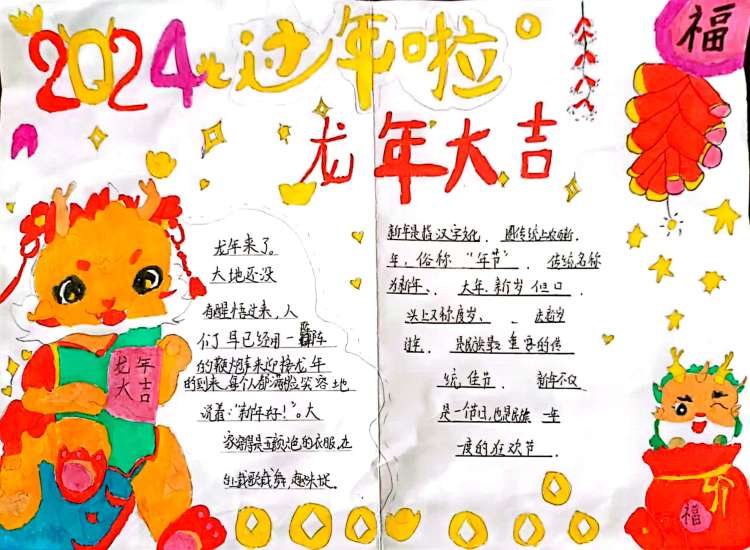 2024 过年啦
福
龙年大吉
龙年来了。
大地还没
有醒悟过来，人
们早已经用一阵阵
的鞭炮声来迎接龙年
的到来，每个人都满脸笑容地
说着："新年好！"。大
家穿得是五颜六色的衣服，在
载歌载舞，
新年是 汉字文化、 传统上农历新
年，俗称"年节"、 传统名称
为新年、 大年、新岁 但口
头上又称度岁、 去
过年、 是民族最重要的传
统佳节 新年不仅
是一个节日，也是民族一年
度的狂欢节.
龙年
大吉
福